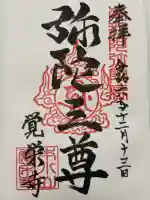 奉拝
令和六年十二月十三日
弥陀三尊
覚栄寺